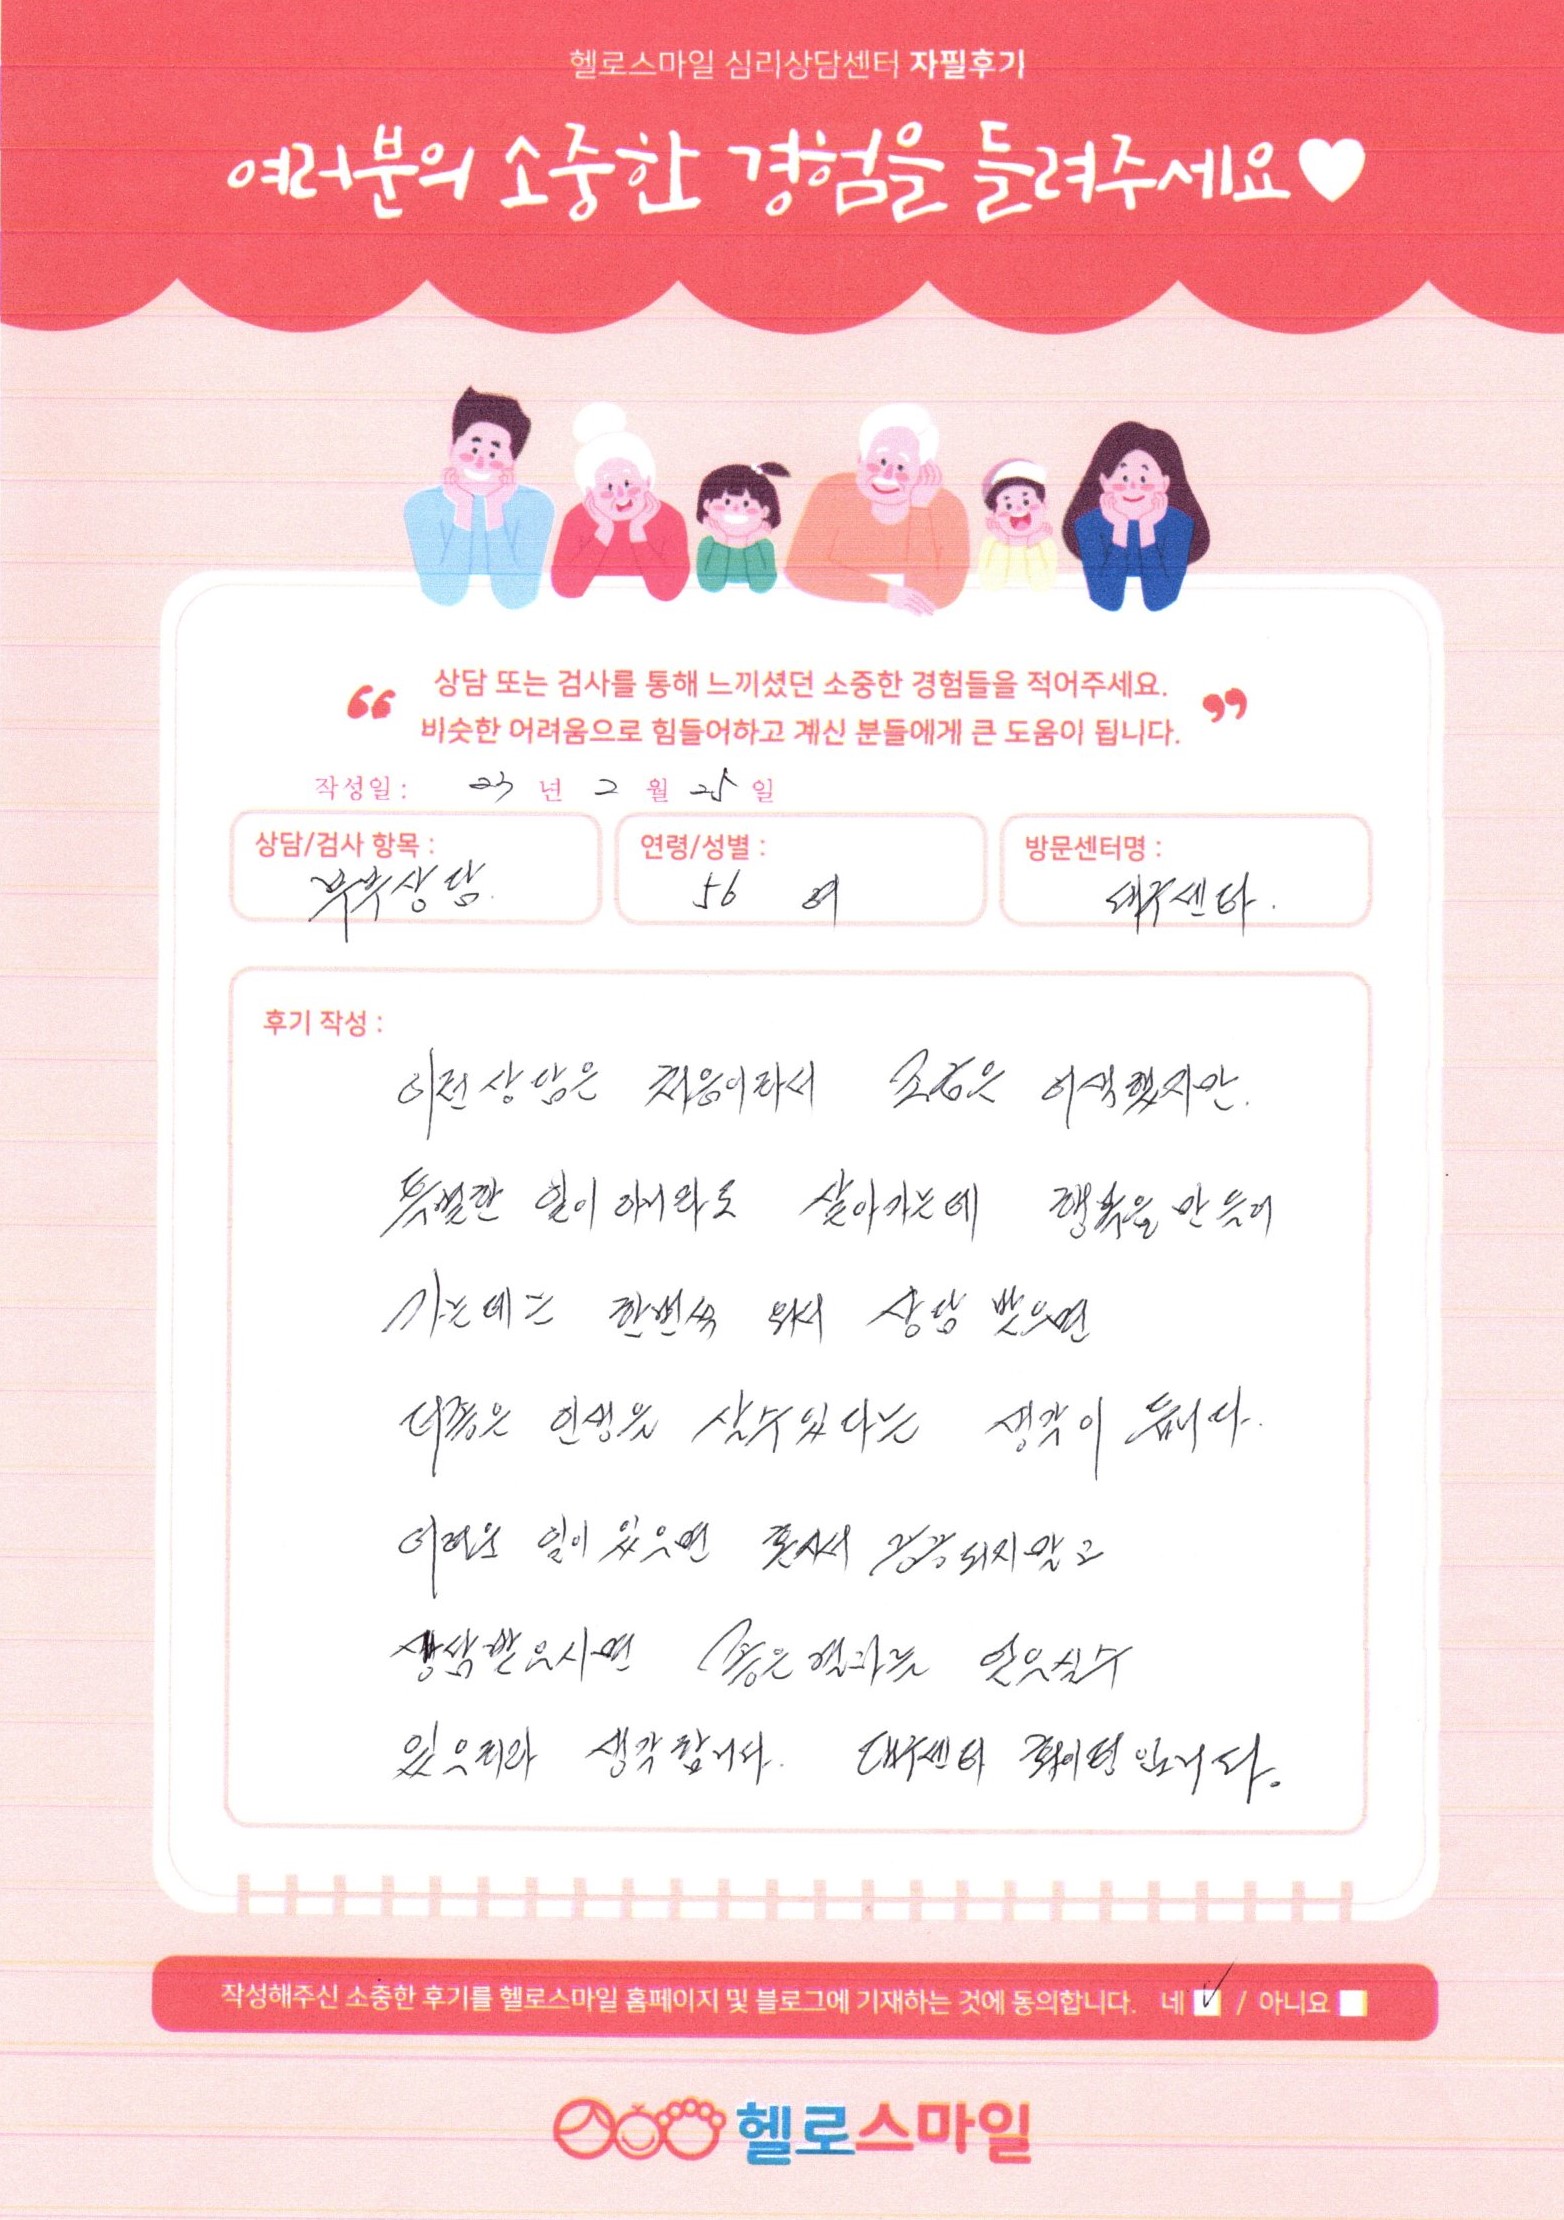 헬로스마일 심리상담센터 자필후기
여러분의 소중한 경험을 들려주세요
상담 또는 검사를 통해 느끼셨던 소중한 경험들을 적어주세요.
비슷한 어려움으로 힘들어하고 계신 분들에게 큰 도움이 됩니다.
작성일: 23 년 2 월 25 일
상담/검사 항목 : 연령/성별 : 방문센터명 :
부부상담. 56 여 대구센터.
후기 작성 :
이런 상담은 처음이라서 조금은 어색했지만.
특별한 일이 아니라도 살아가는데 행복을 만들어
가는데는 한번씩 와서 상담 받으면
더좋은 인생을 살수있다는 생각이 듭니다.
어려운 일이 있으면 혼자서 끙끙되지말고
상담받으시면 좋은결과를 얻으실수
있으리라 생각합니다. 대구센터 화이팅입니다.
작성해주신 소중한 후기를 헬로스마일 홈페이지 및 블로그에 기재하는 것에 동의합니다. 네 / 아니요
헬로스마일